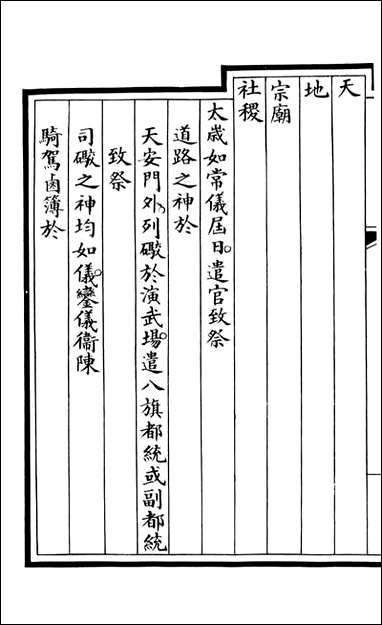 天
地
宗廟
社稷
太歲如常儀屆日遣官致祭
道路之神於
天安門外列礮於演武場遣八旗都統或副都統
致祭
司礮之神均如儀鑾儀衞陳
騎駕鹵簿於